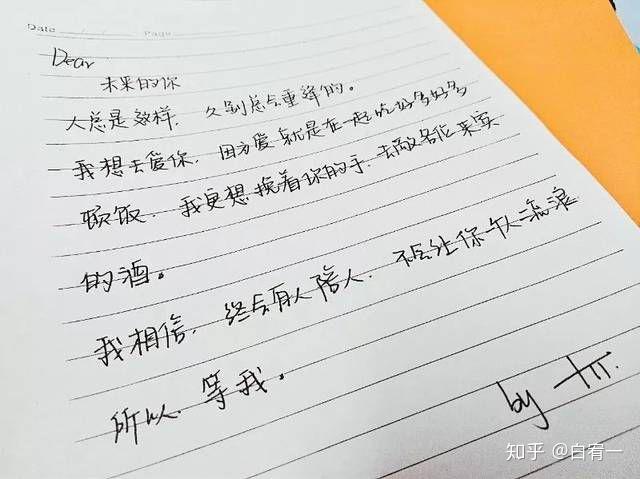 Date
Page
Dear
未来的你
人总是这样，久别总会重逢的。
我想去爱你，因为爱就是在一起吃好多好多
顿饭，我更想挽着你的手，去敬各位来宾
的酒。
我相信，终会有人陪人，不会让你个人流浪
所以，等我。
by
知乎 @白宥一